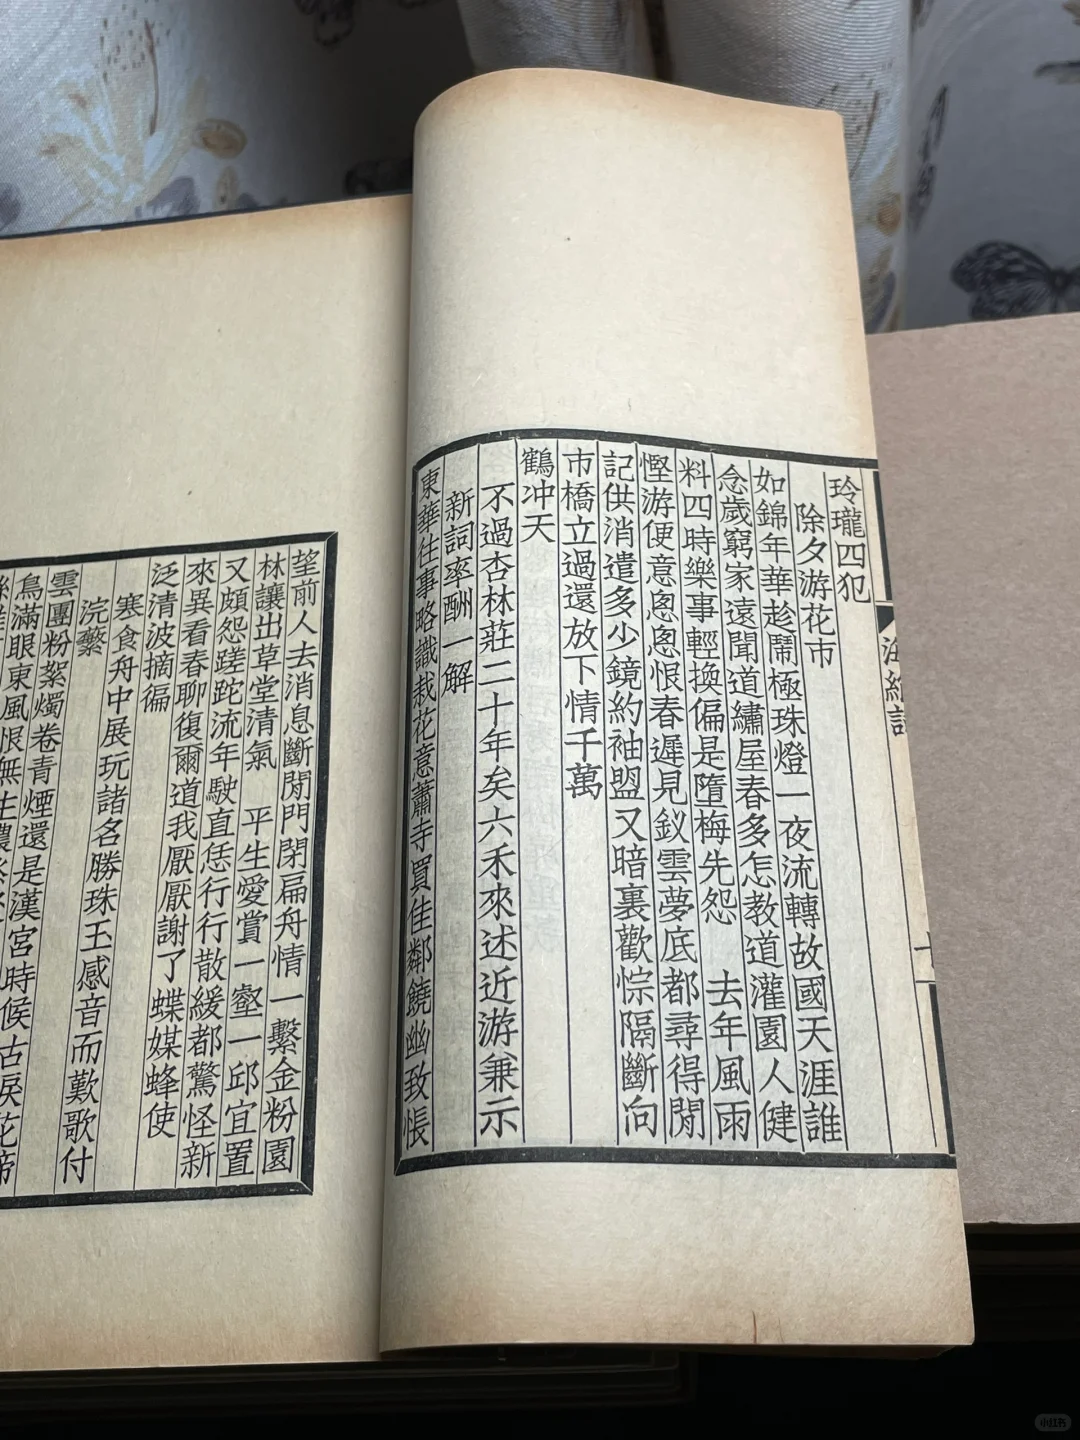 玲瓏四犯
除夕游花市
如錦年華趁鬧極珠燈一夜流轉故國天涯誰
念歲窮家遠聞道繡屋春多怎教道灌園人健
料四時樂事輕換偏是墮梅先怨　去年風雨
慳游便意悤悤恨春遲見釵雲夢底都尋得閒
記供消遣多少鏡約袖盟又暗裏歡悰隔斷向
市橋立過還放下情千萬
鶴冲天
不過杏林莊二十年矣六禾來述近游兼示
新詞率酬一解
東華往事略識栽花意蕭寺買佳鄰饒幽致悵
望前人去消息斷閒門閉扁舟情一繫金粉園
林讓出草堂清氣　平生愛賞一壑一邱宜置
又頗怨蹉跎流年駛直恁行行散緩都驚怪新
來異看春聊復爾道我厭厭謝了蝶媒蜂使
泛清波摘徧
寒食舟中展玩諸名勝珠玉感音而歎歌付
浣蘩
雲團粉絮燭卷青煙還是漢宮時候古淚花啼
鳥滿眼東風恨無生
小红书